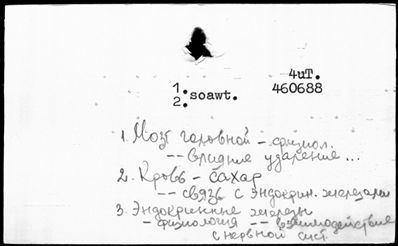 4uT.
1.soawt. 460688
2.
1. Мозг головной - физиол.
-- влияние удаления ...
2. Кровь - сахар
-- связь с эндокрин. железами
3. Эндокринные железы
- физиология -- взаимодействие
с нервной сист.